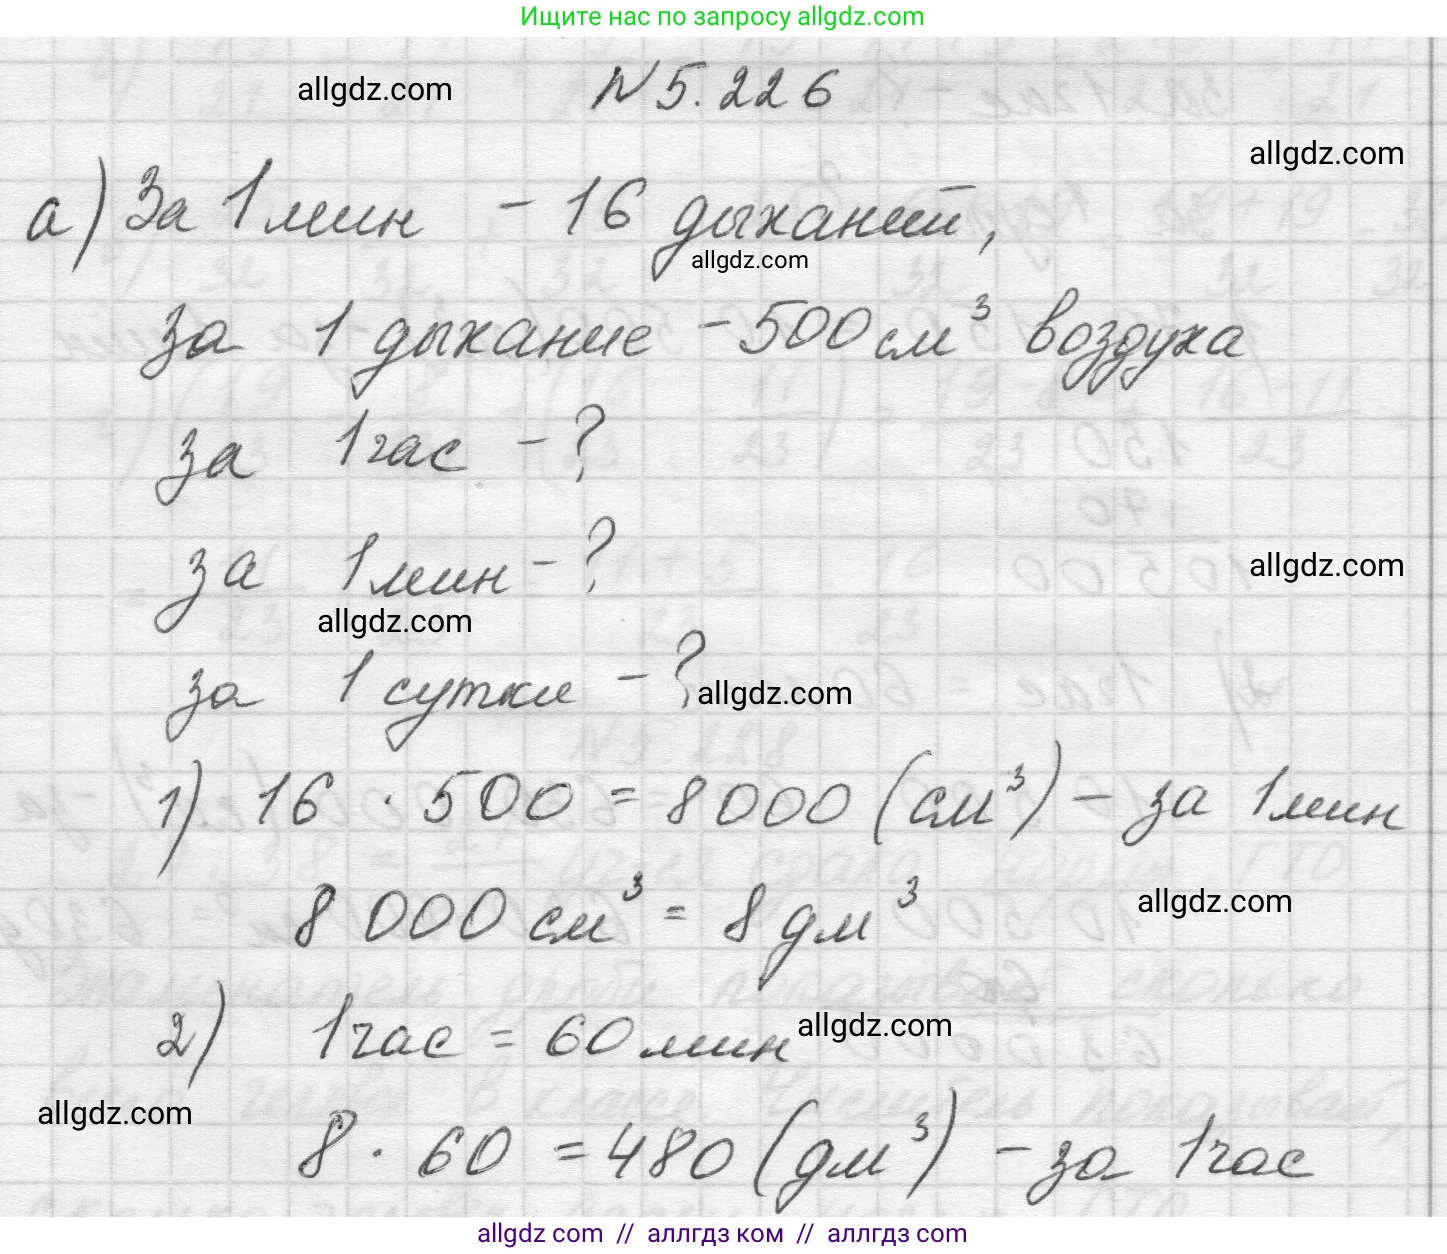 Ищите нас по запросу allgdz.com
allgdz.com
N 5.226
allgdz.com
а) За 1 мин - 16 дыханий,
allgdz.com
за 1 дыхание - 500 см³ воздуха
за 1 час - ?
за 1 мин - ?
allgdz.com
allgdz.com
за 1 сутки - ?
allgdz.com
1) 16 · 500 = 8000 (см³) - за 1 мин
8 000 см³ = 8 дм³
allgdz.com
2) 1 час = 60 мин
allgdz.com
allgdz.com
8 · 60 = 480 (дм³) - за 1 час
allgdz.com // аллгдз ком // аллгдз.com